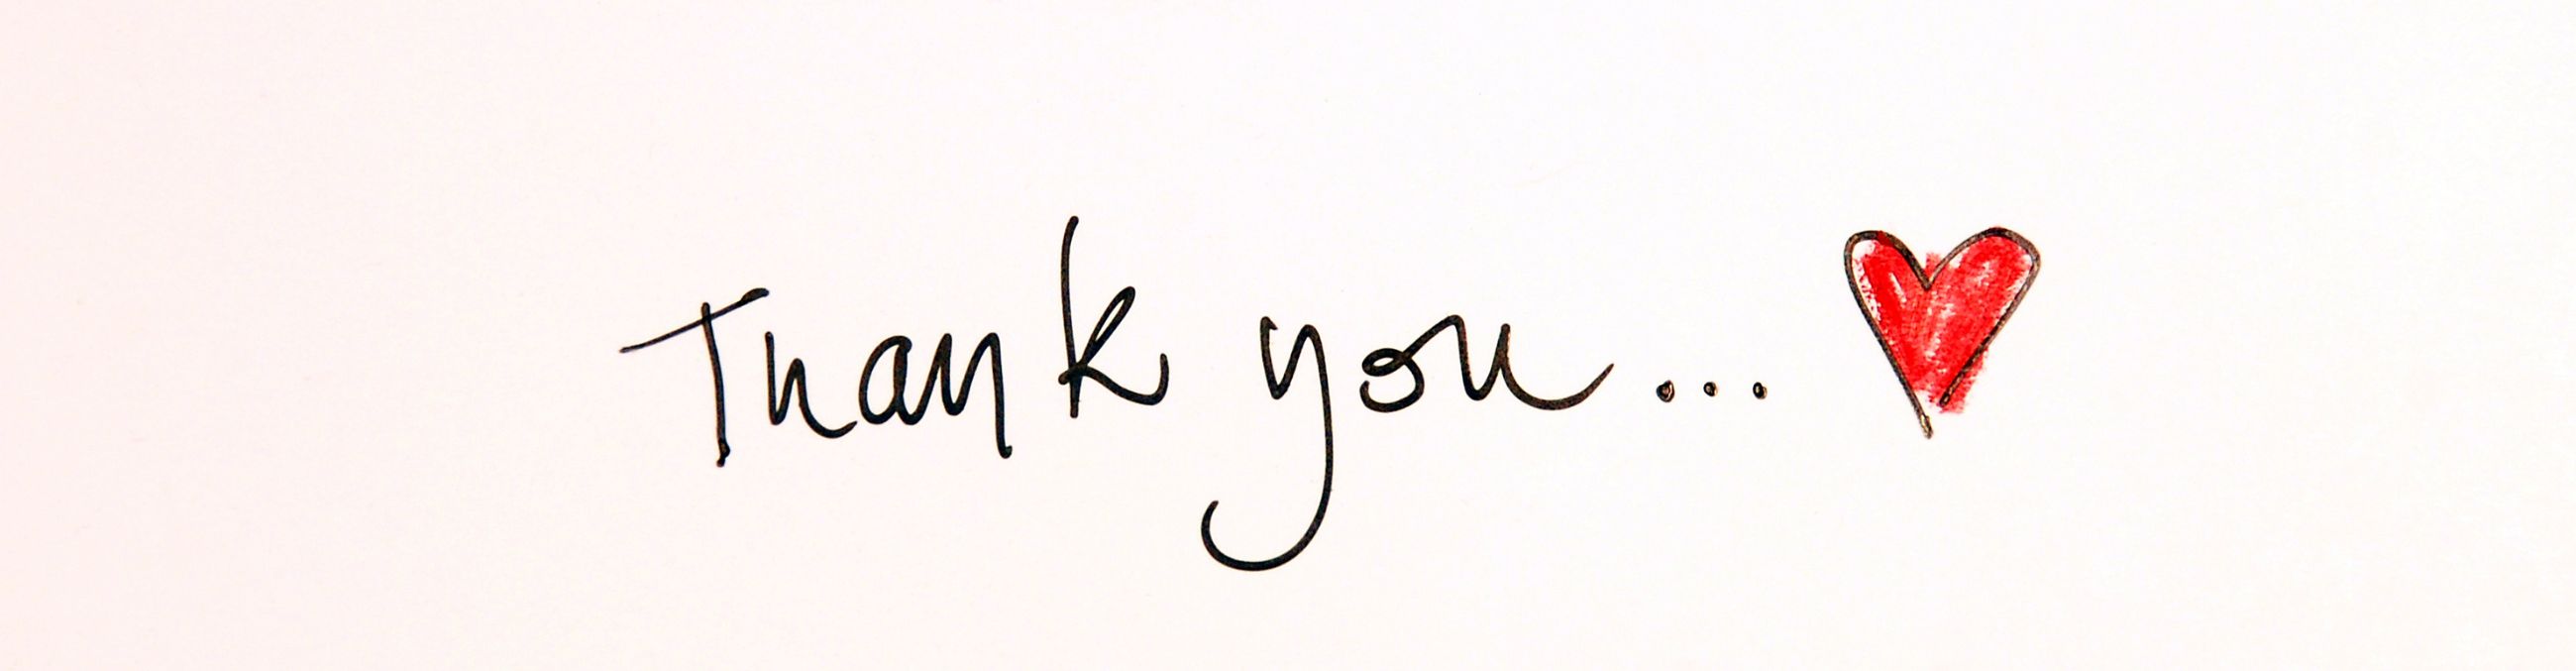 Thank you...